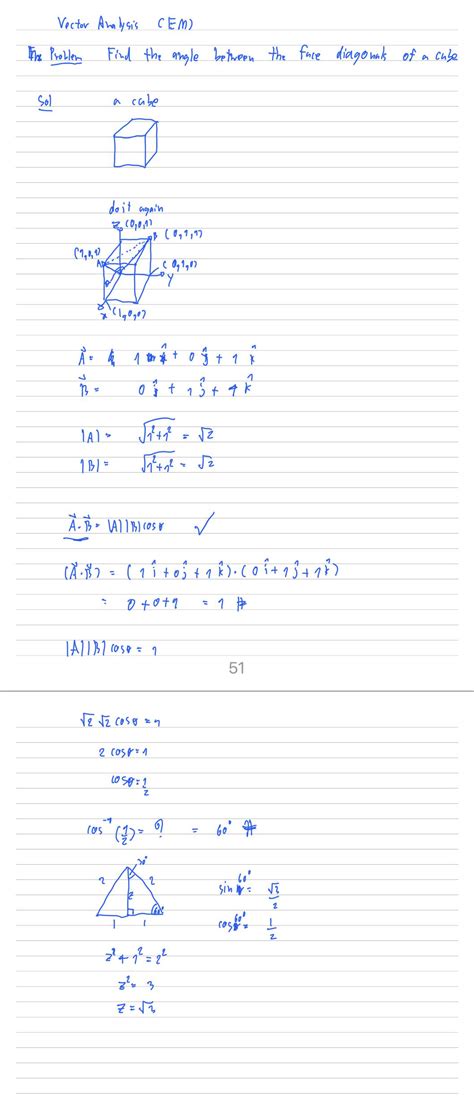 Vector Analysis (EM)
The Problem Find the angle between the face diagonals of a cube
Sol a cube
do it again
Z (0,0,1)
B (0,1,1)
(1,0,1)
A
C (0,1,0)
Y
θ
X (1,0,0)
A⃗ = 1 î + 0 ĵ + 1 k̂
B⃗ = 0 î + 1 ĵ + 1 k̂
|A| = √(1²+1²) = √2
|B| = √(1²+1²) = √2
A⃗·B⃗ = |A||B|cosθ ✓
(A⃗·B⃗) = (1 î + 0 ĵ + 1 k̂)·(0 î + 1 ĵ + 1 k̂)
= 0+0+1 = 1 #
|A||B|cosθ = 1
51
√2 √2 cosθ = 1
2 cosθ = 1
cosθ = 1/2
cos⁻¹(1/2) = ? = 60° #
30°
2 2
z
60°
1 1
sin 60° = √3/2
cos 60° = 1/2
z² + 1² = 2²
z² = 3
z = √3